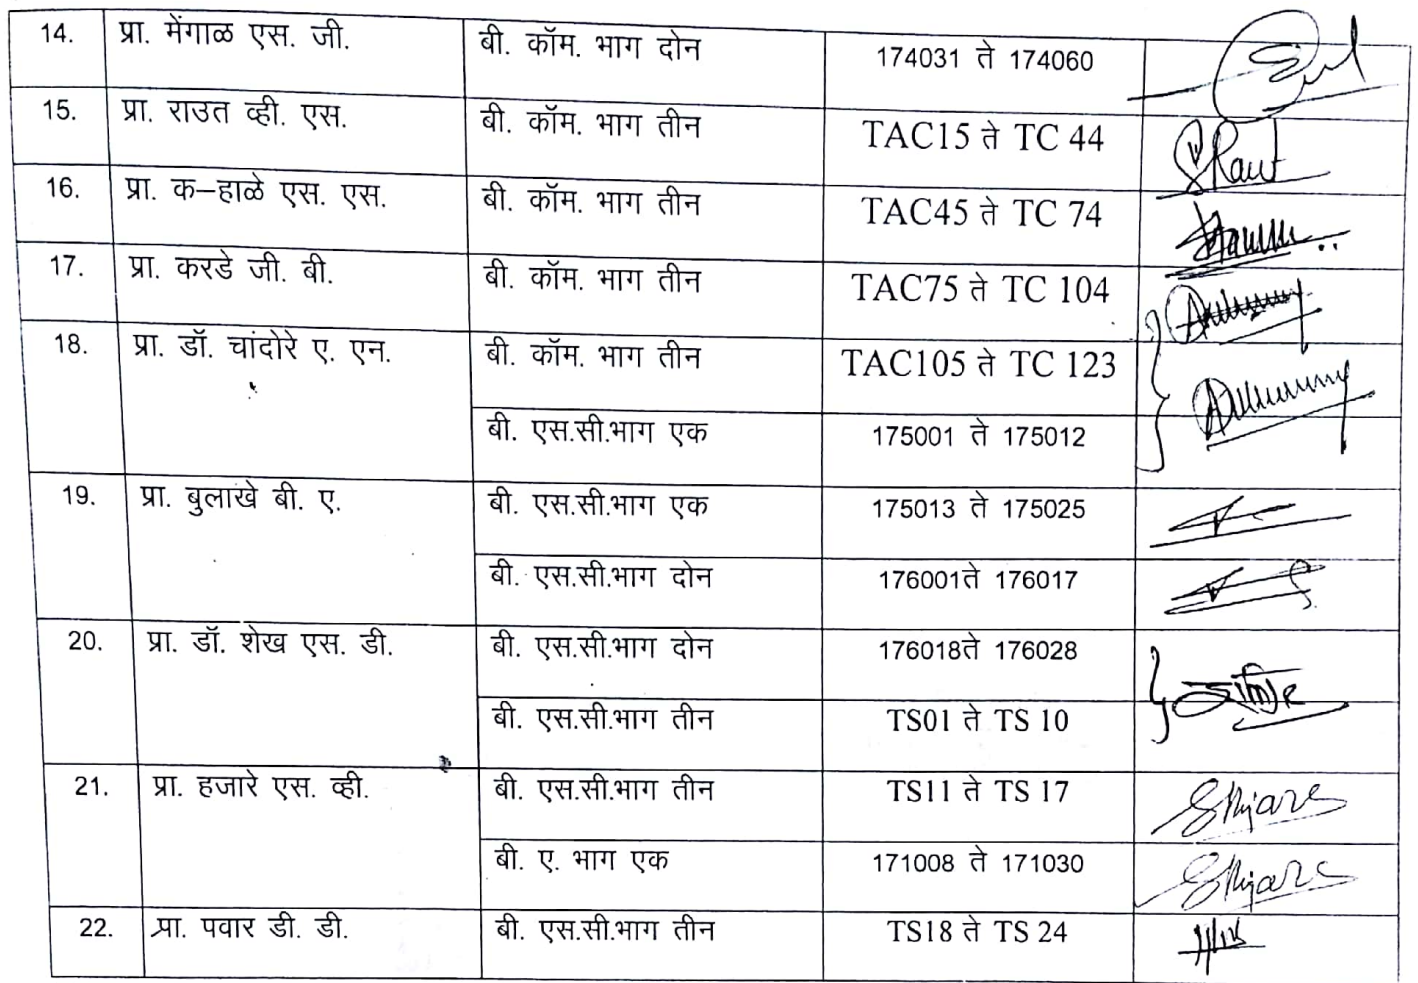 14. प्रा. मेंगाळ एस. जी. बी. कॉम. भाग दोन 174031 ते 174060
15. प्रा. राउत व्ही. एस. बी. कॉम. भाग तीन TAC15 ते TC 44 SRaut
16. प्रा. क–हाळे एस. एस. बी. कॉम. भाग तीन TAC45 ते TC 74
17. प्रा. करडे जी. बी. बी. कॉम. भाग तीन TAC75 ते TC 104
18. प्रा. डॉ. चांदोरे ए. एन. बी. कॉम. भाग तीन TAC105 ते TC 123
बी. एस.सी.भाग एक 175001 ते 175012
19. प्रा. बुलाखे बी. ए. बी. एस.सी.भाग एक 175013 ते 175025
बी. एस.सी.भाग दोन 176001ते 176017
20. प्रा. डॉ. शेख एस. डी. बी. एस.सी.भाग दोन 176018ते 176028
बी. एस.सी.भाग तीन TS01 ते TS 10
21. प्रा. हजारे एस. व्ही. बी. एस.सी.भाग तीन TS11 ते TS 17
बी. ए. भाग एक 171008 ते 171030
22. प्रा. पवार डी. डी. बी. एस.सी.भाग तीन TS18 ते TS 24